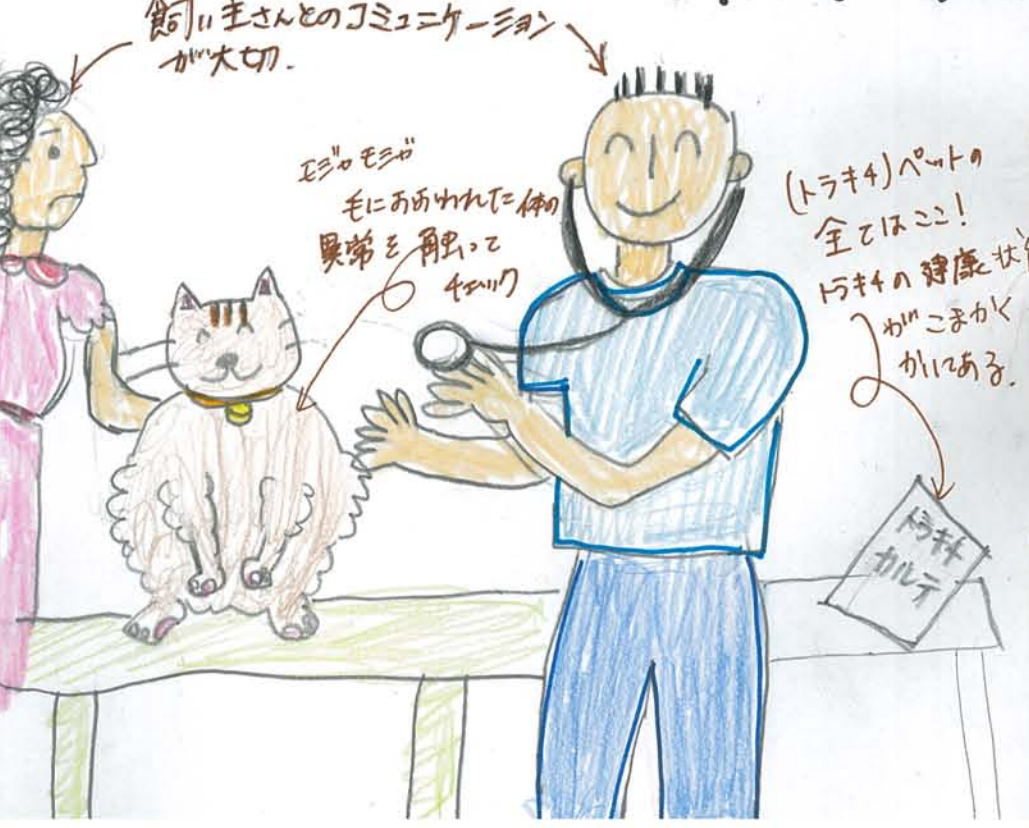 飼い主さんとのコミュニケーション
が大切.
モジャモジャ
毛におおわれた体の
異常を触って
チェック
(トラキチ)ペットの
全てはここ!
トラキチの健康状
がこまかく
かいてある.
トラキチ
カルテ